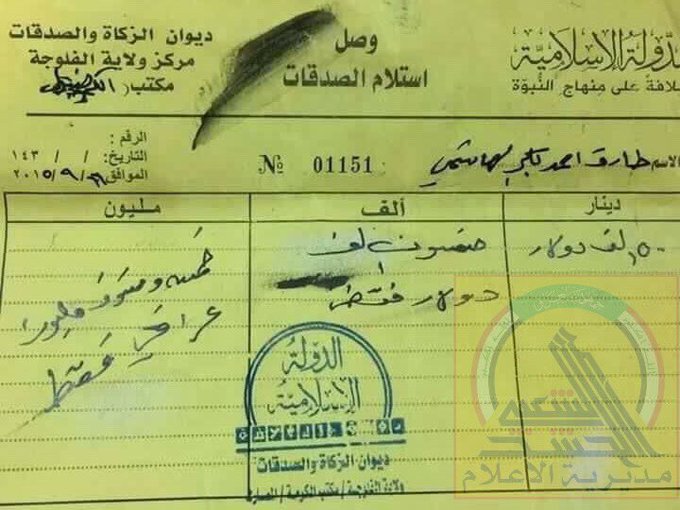 الدولة الإسلامية
خلافة على منهاج النبوة
وصل
استلام الصدقات
ديوان الزكاة والصدقات
مركز ولاية الفلوجة
مكتب (
الرقم :
التاريخ: / / ١٤٣
الموافق ٢٠١٥/٩/
№ 01151
الاسم طارق احمد بكر
دينار
ألف
مليون
٥٠ الف دولار
خمسون الف
دولار فقط
خمسه وستون مليون
عراقي فقط
الدولة
الإسلامية
ديوان الزكاة والصدقات
ولاية الفلوجة / مكتب الكرمة /
الحشد الشعبي
مديرية الاعلام